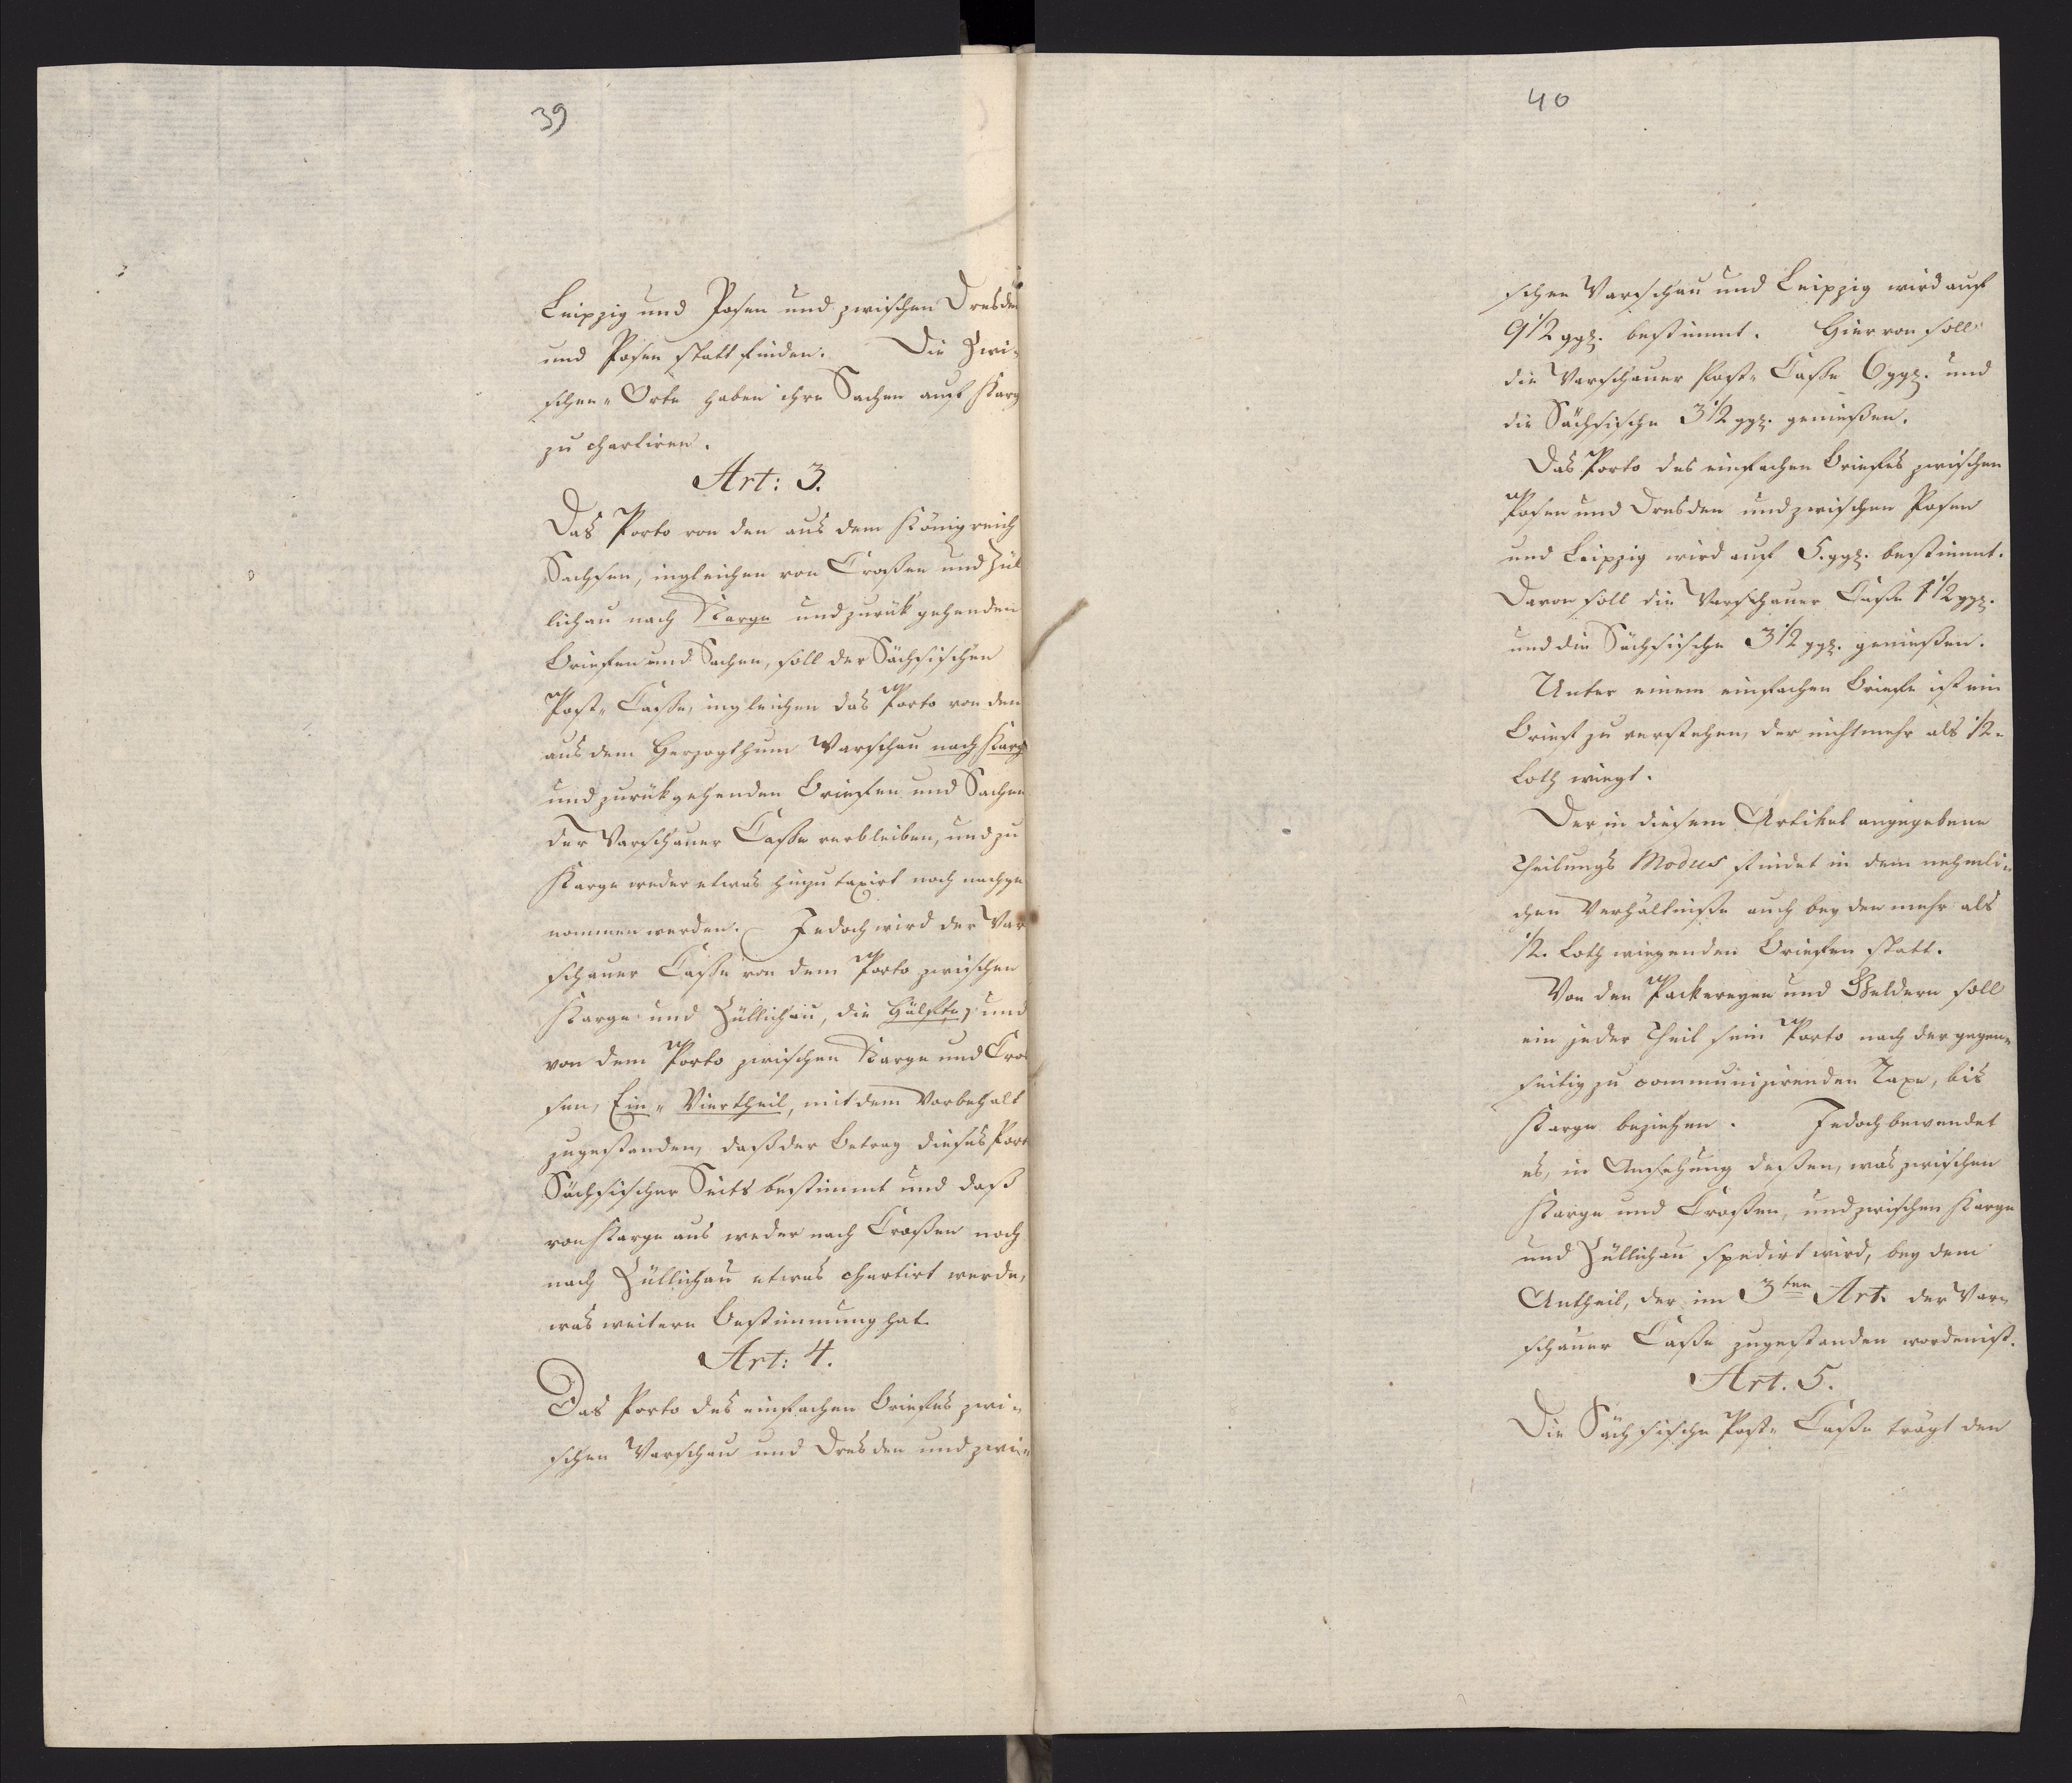 39
Leipzig und Posen und zwischen Dresden
und Posen statt finden. Die Zwi-
schen-Orte haben ihre Sachen auf Karg
zu chartiren.
Art: 3.
Das Porto von den aus dem Königreich
Sachsen, ingleichen von Croßen und Zül
lichau nach Karge und zurük gehenden
Briefen und Sachen, soll der Sächsischen
Post-Casse, ingleichen das Porto von den
aus dem Herzogthum Warschau nach Karg
und zurükgehenden Briefen und Sachen
der Warschauer Casse verbleiben, und zu
Karge weder etwas hinzu taxirt noch nachge
nommen werden. Jedoch wird der War
schauer Casse von dem Porto zwischen
Karge und Züllichau, die Hälfte, und
von dem Porto zwischen Karge und Cros
sen, Ein-Viertheil, mit dem Vorbehalt
zugestanden, daß der Betrag dieses Port
Sächsischer Seits bestimmt und daß
von Karge aus weder nach Croßen noch
nach Züllichau etwas chartirt werde,
was weitere Bestimmung hat.
Art: 4.
Das Porto des einfachen Briefes zwi-
schen Warschau und Dresden und zwi-
40
schen Warschau und Leipzig wird auf
9 1/2 ggl. bestimmt. Hiervon soll
die Warschauer Post-Casse 6 ggl. und
die Sächsische 3 1/2 ggl. genießen.
Das Porto des einfachen Briefes zwischen
Posen und Dresden und zwischen Posen
und Leipzig wird auf 5. ggl. bestimmt.
Davon soll die Warschauer Casse 1 1/2 ggl.
und die Sächsische 3 1/2 ggl. genießen.
Unter einem einfachen Briefe ist ein
Brief zu verstehen, der nicht mehr als 1/2-
Loth wiegt.
Der in diesem Artikel angegebene
Theilungs Modus findet in dem nehmli-
chen Verhältnisse auch bey den mehr als
1/2. Loth wiegenden Briefen statt.
Von den Packereyen und Geldern soll
ein jeder Theil sein Porto nach der gegen-
seitig zu communizirenden Taxe, bis
Karge beziehen. Jedoch bewendet
es, in Ansehung deßen, was zwischen
Karge und Croßen, und zwischen Karge
und Züllichau spedirt wird, bey dem
Antheil, der im 3ten Art. der War-
schauer Casse zugestanden worden ist.
Art. 5.
Die Sächsische Post-Casse trägt den